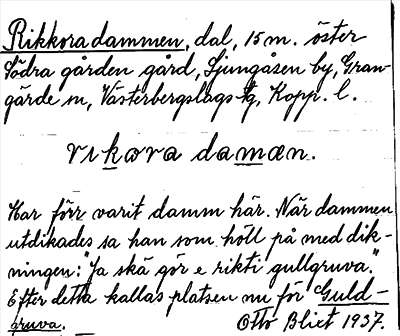 Rikkoradammen, dal, 15 m. öster
Södra gården gård, Ljungåsen by, Gran-
gärde sn, Västerbergslags tg, Kopp. l.
rikora damen.
Har förr varit damm här. När dammen
utdikades sa han som höll på med dik-
ningen: "Ja skä gör e rikti gullgruva."
Efter detta kallas platsen nu för Guld-
gruva.
Otto Blixt 1937.